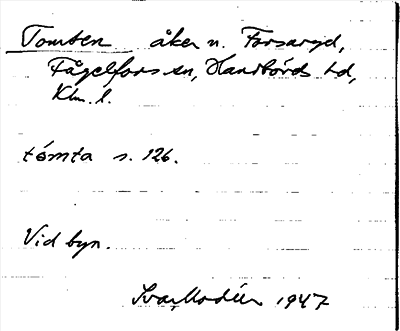 Tomten åker n. Forsaryd,
Fågelfors sn, Handbörds hd,
Klm. l.
tómta s. 126.
Vid byn.
Ivar Modéer 1947